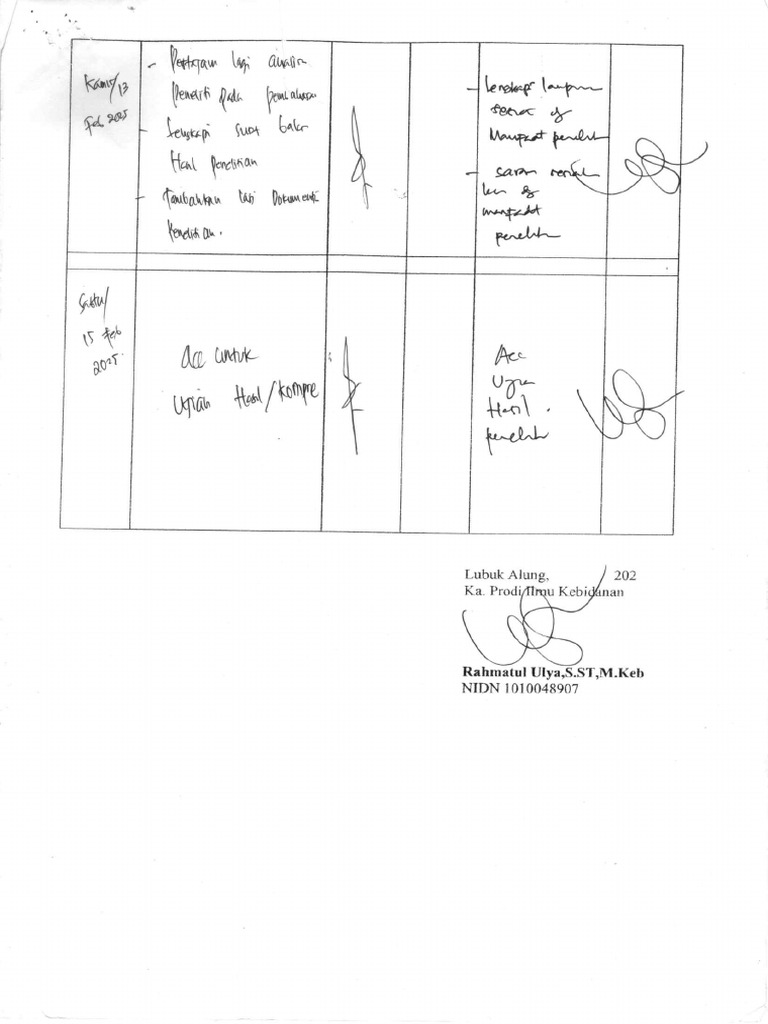 Kamis/13
Feb 2025
- Pertajam lagi analisa
Peneliti pada pembahasan
- Lengkapi surat balasan
Hasil Penelitian
- Tambahkan lagi Dokumentasi
Penelitian.
- Lengkapi lampiran
sesuai dg
Manfaat penelitian
- saran
kan dg
manfaat
penelitian
Sabtu/
15 Feb
2025.
Acc untuk
Ujian Hasil/Kompre
Acc
Ujian
Hasil.
penelitian
Lubuk Alung, 202
Ka. Prodi Ilmu Kebidanan
Rahmatul Ulya,S.ST,M.Keb
NIDN 1010048907